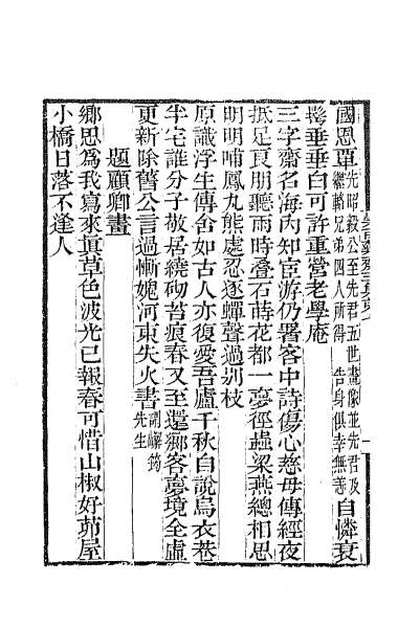 國恩單先昭毅公至先君五世畫像並先君及繼轓兄弟四人所得告身俱幸無恙自憐衰
鬢垂垂白可許重營老學庵
三字齋名海內知宦游仍署客中詩傷心慈母傳經夜
抵足良朋聽雨時疊石蒔花都一夢徑蟲梁燕總相思
明明哺鳳丸熊處忍逐蟬聲過別枝
原識浮生傳舍如古人亦復愛吾廬千秋自說烏衣巷
半宅誰分子敬居繞砌苔痕春又至還鄉客夢境全虛
更新除舊公言過慚媿河東失火書謂嶰筠先生
題顧卿畫
鄉思為我寫來眞草色波光已報春可惜山椒好茆屋
小橋日落不逢人